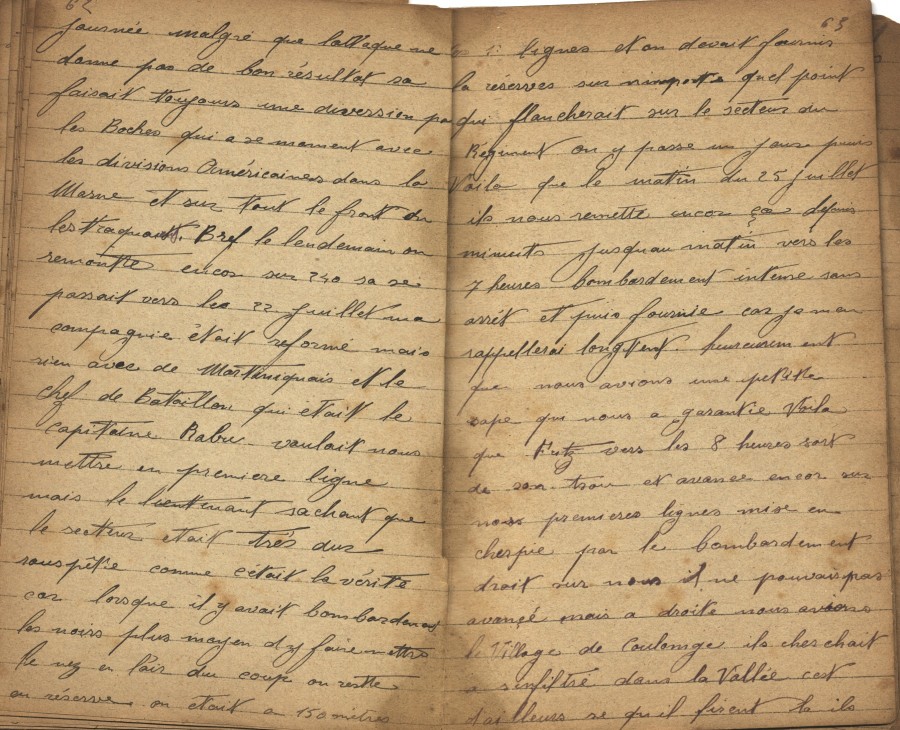 62
journée malgré que lattaque ne
donne pas de bon résultat sa
faisait toujours une diversion pa
les Boches qui a se moment avec
les divisions Américaines dans la
Marne et sur tout le front on
les traquait. Bref le lendemain on
remontre encor sur 240 sa se
passait vers les 22 Juillet ma
compagnie était reformé mais
rien avec de Martiniquais et le
chef de Bataillon qui était le
capitaine Rabu voulait nous
mettre en premiere ligne
mais le lieutenant sachant que
le secteur était très dur
rouspète comme cétait la vérité
car lorsque il y avait bombardement
les noirs plus moyen dy faire mettre
le nez en lair du coup on reste
en réserve on était a 150 mètres
63
lignes et on devait fournir
la réserves sur nimporte quel point
qui flancherait sur le secteur du
Régiment on y passe un jours puis
Voila que le matin du 25 Juillet
ils nous remette encor ça depuis
minuits jusquau matin vers les
7 heures bombardement intense sans
arrêt et puis fournie car je men
rappellerai longtent. heureusement
que nous avions une petite
sape qui nous a garantie Voila
que Fritz vers les 8 heures sort
de son trou et avance encor sur
nos premieres lignes mise en
cherpie par le bombardement
droit sur nous il ne pouvais pas
avançé mais a droite nous avions
le Village de Coulonge ils cherchait
a senfiltré dans la Vallée cest
dailleurs se qu il firent la ils